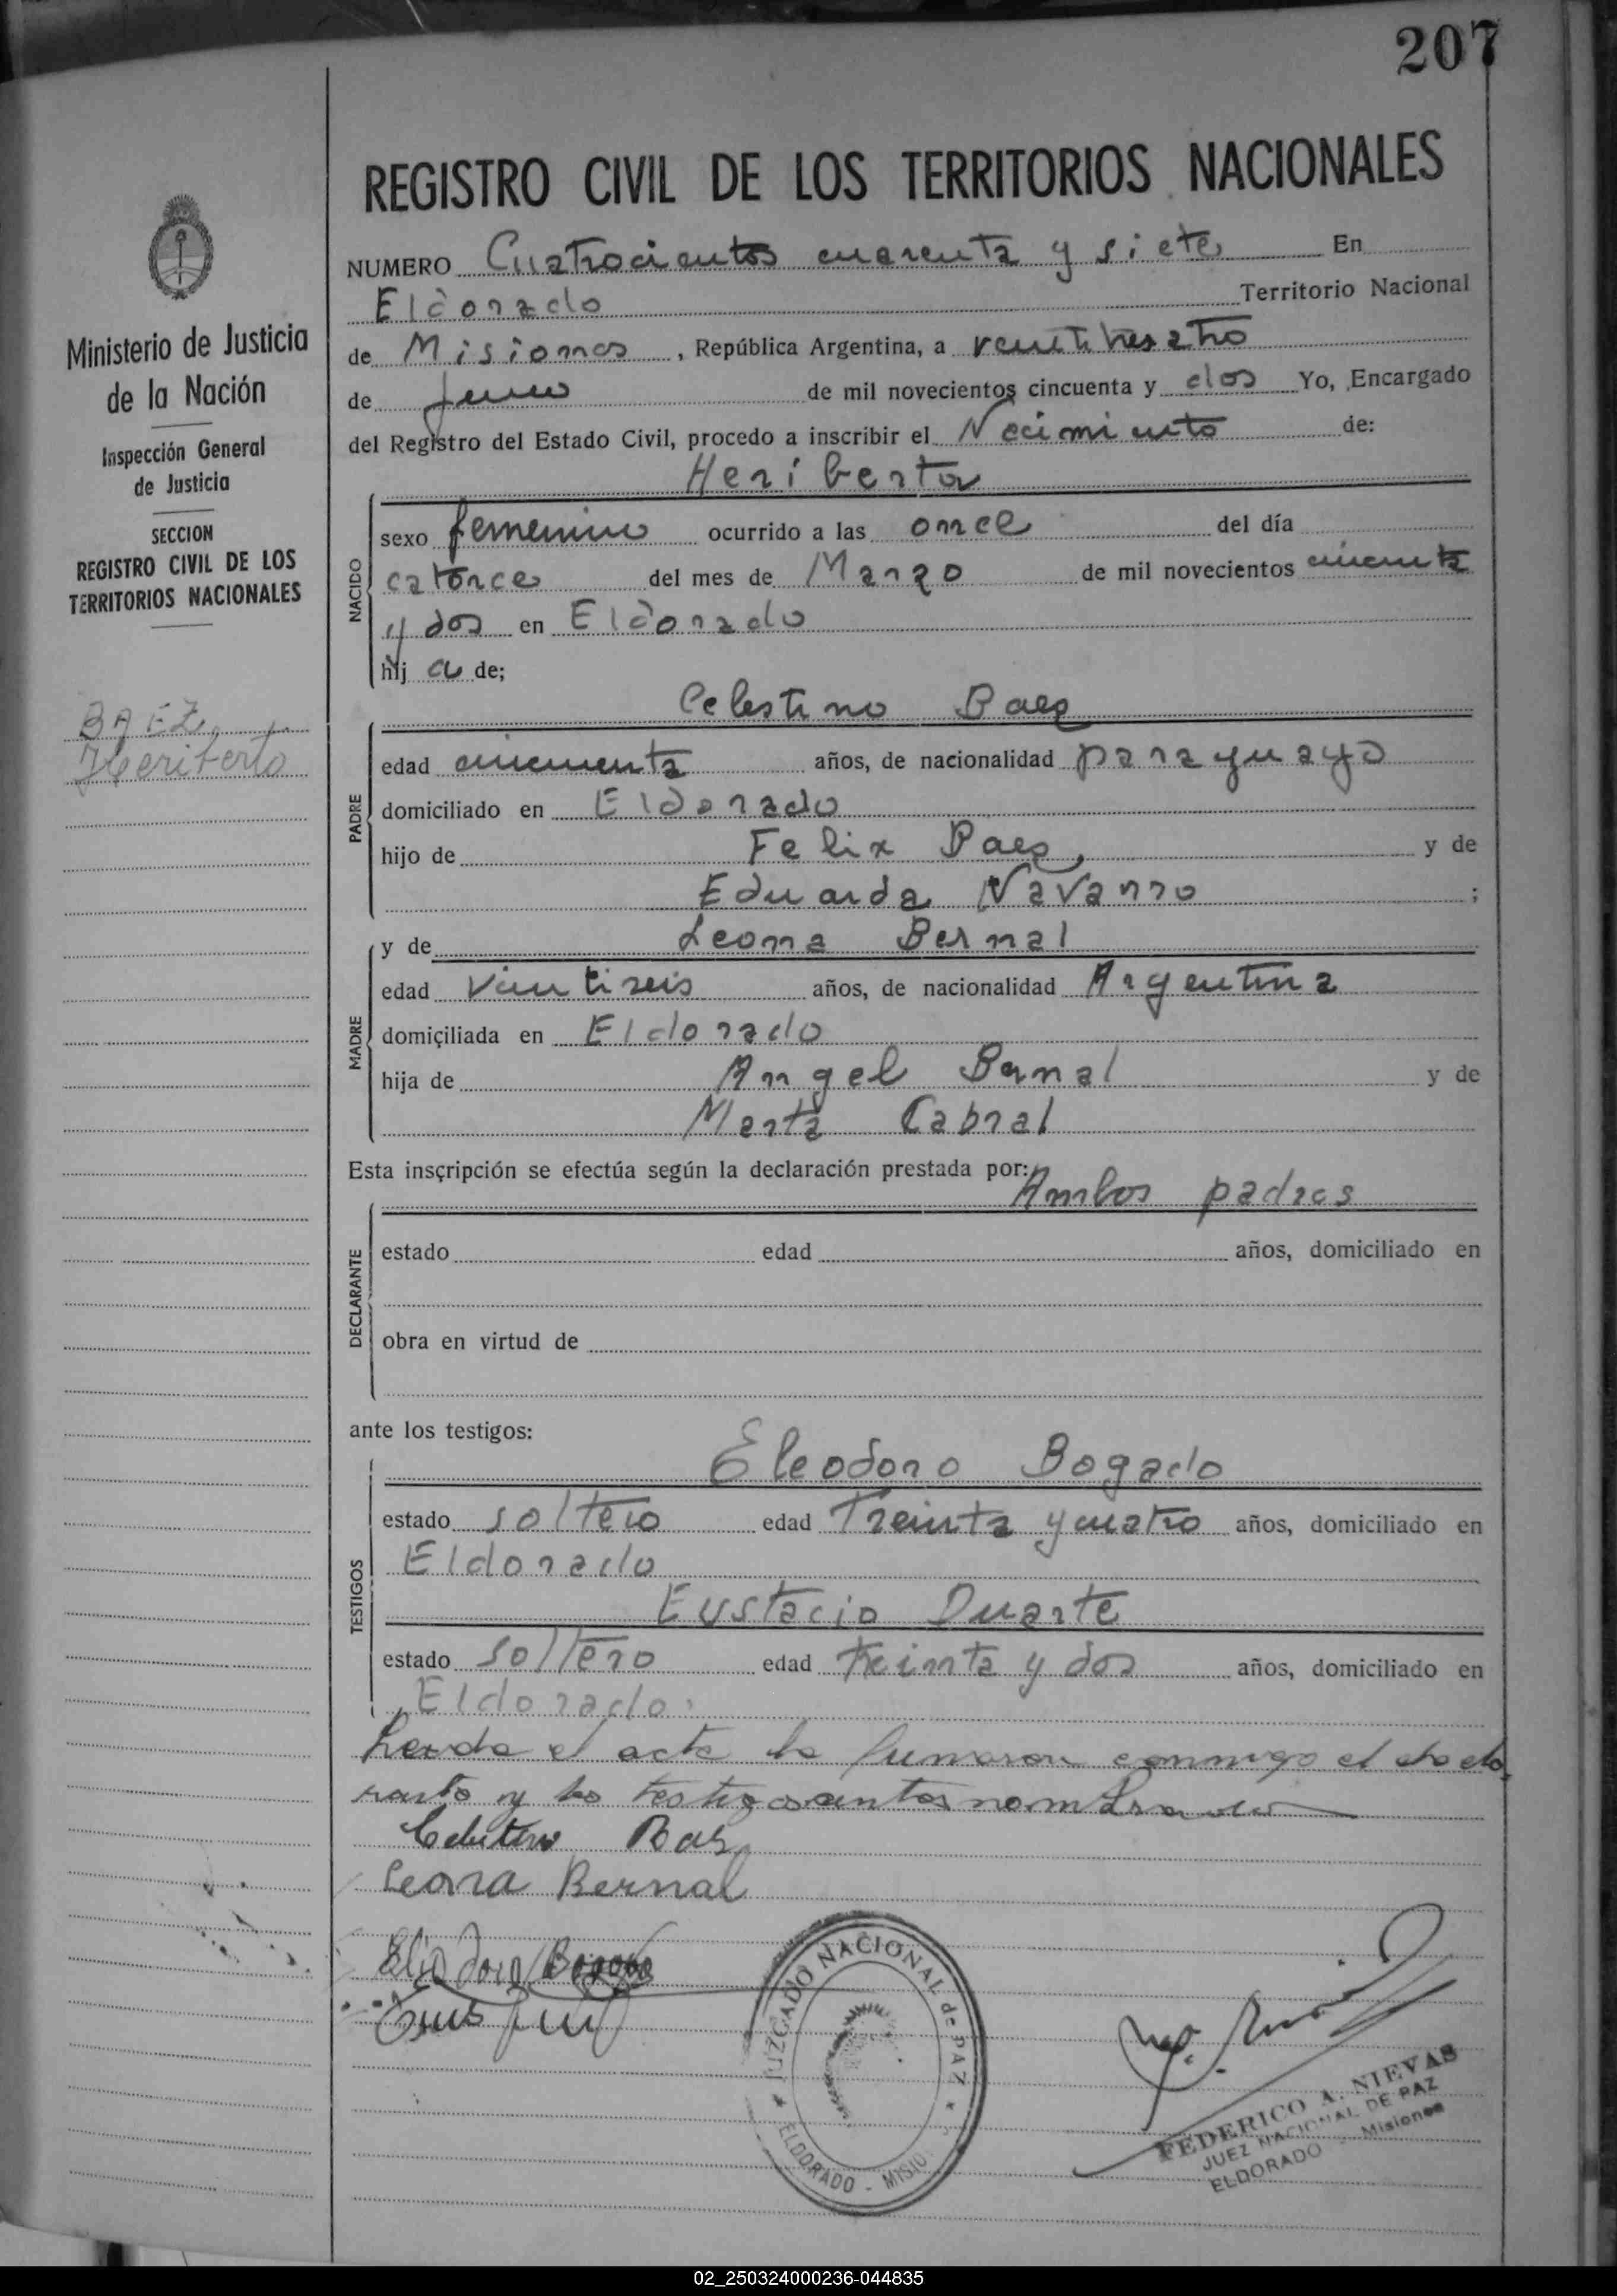 207
REGISTRO CIVIL DE LOS TERRITORIOS NACIONALES
NUMERO Cuatrocientos cuarenta y siete En
Eldorado Territorio Nacional
de Misiones, República Argentina, a
de Junio de mil novecientos cincuenta y dos Yo, Encargado
del Registro del Estado Civil, procedo a inscribir el Nacimiento de:
Heriberta
NACIDO
sexo femenino ocurrido a las once del día
catorce del mes de Marzo de mil novecientos cincuenta
y dos en Eldorado
hij a de;
Celestino Baez
PADRE
edad cincuenta años, de nacionalidad paraguayo
domiciliado en Eldorado
hijo de Felix Baez, y de
Eduarda Navarro ;
y de Leona Bernal
MADRE
edad vientiseis años, de nacionalidad Argentina
domiciliada en Eldorado
hija de Angel Bernal y de
Marta Cabral
Esta inscripción se efectúa según la declaración prestada por: Ambos padres
DECLARANTE
estado edad años, domiciliado en
obra en virtud de
ante los testigos:
Eleodoro Bogado
TESTIGOS
estado soltero edad Treinta y cuatro años, domiciliado en
Eldorado
Eustacio Duarte
estado soltero edad treinta y dos años, domiciliado en
Eldorado.
Leida el acta la firmaron conmigo el decla
rante y los testigos antes nombrados
Celestino Baez
Leona Bernal
Eliodoro Bogado
JUZGADO NACIONAL de PAZ
ELDORADO - MISIO
FEDERICO A. NIEVAS
JUEZ NACIONAL DE PAZ
ELDORADO - Misiones
Ministerio de Justicia
de la Nación
Inspección General
de Justicia
SECCION
REGISTRO CIVIL DE LOS
TERRITORIOS NACIONALES
BAEZ,
Heriberto
02_250324000236-044835